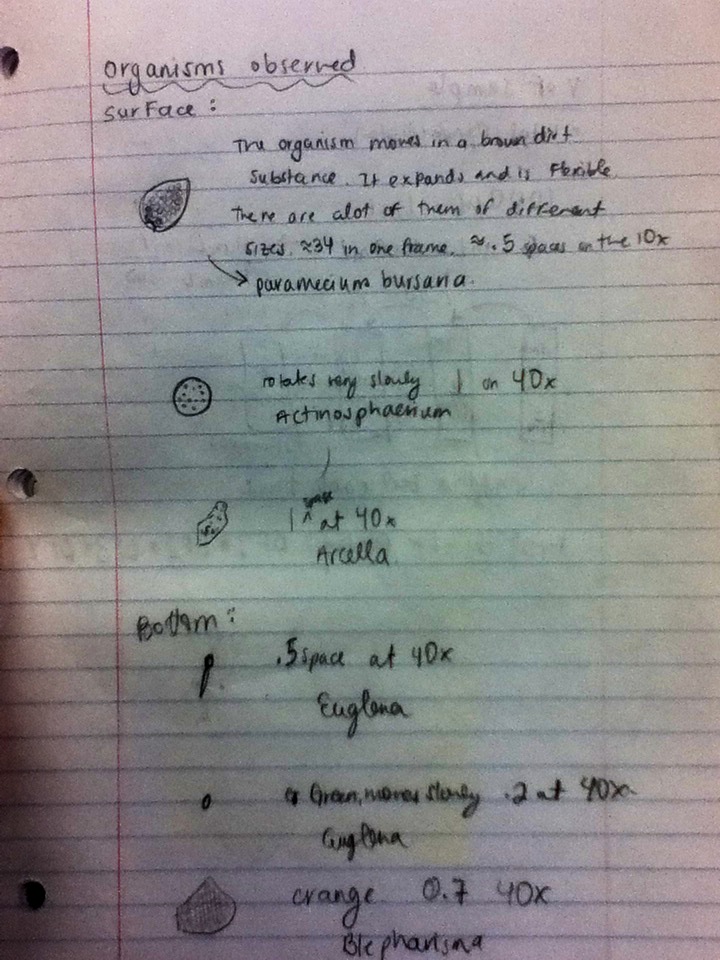 Organisms observed
Surface:
The organism moves in a brown dirt
substance. It expands and is flexible.
there are alot of them of different
sizes. ≈34 in one frame. ≈ .5 spaces on the 10x
paramecium bursaria.
rotates very slowly 1 on 40x
Actinosphaerium
space
1 ^ at 40x
Arcella
Bottom:
.5 space at 40x
Euglena
Green, moves slowly .2 at 40x
Euglena
orange 0.7 40x
Blepharisma